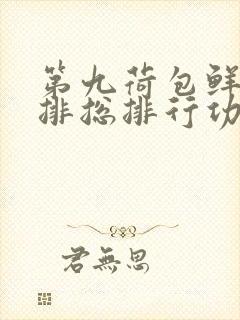 第九荷包鲜
排总排行功
君無思